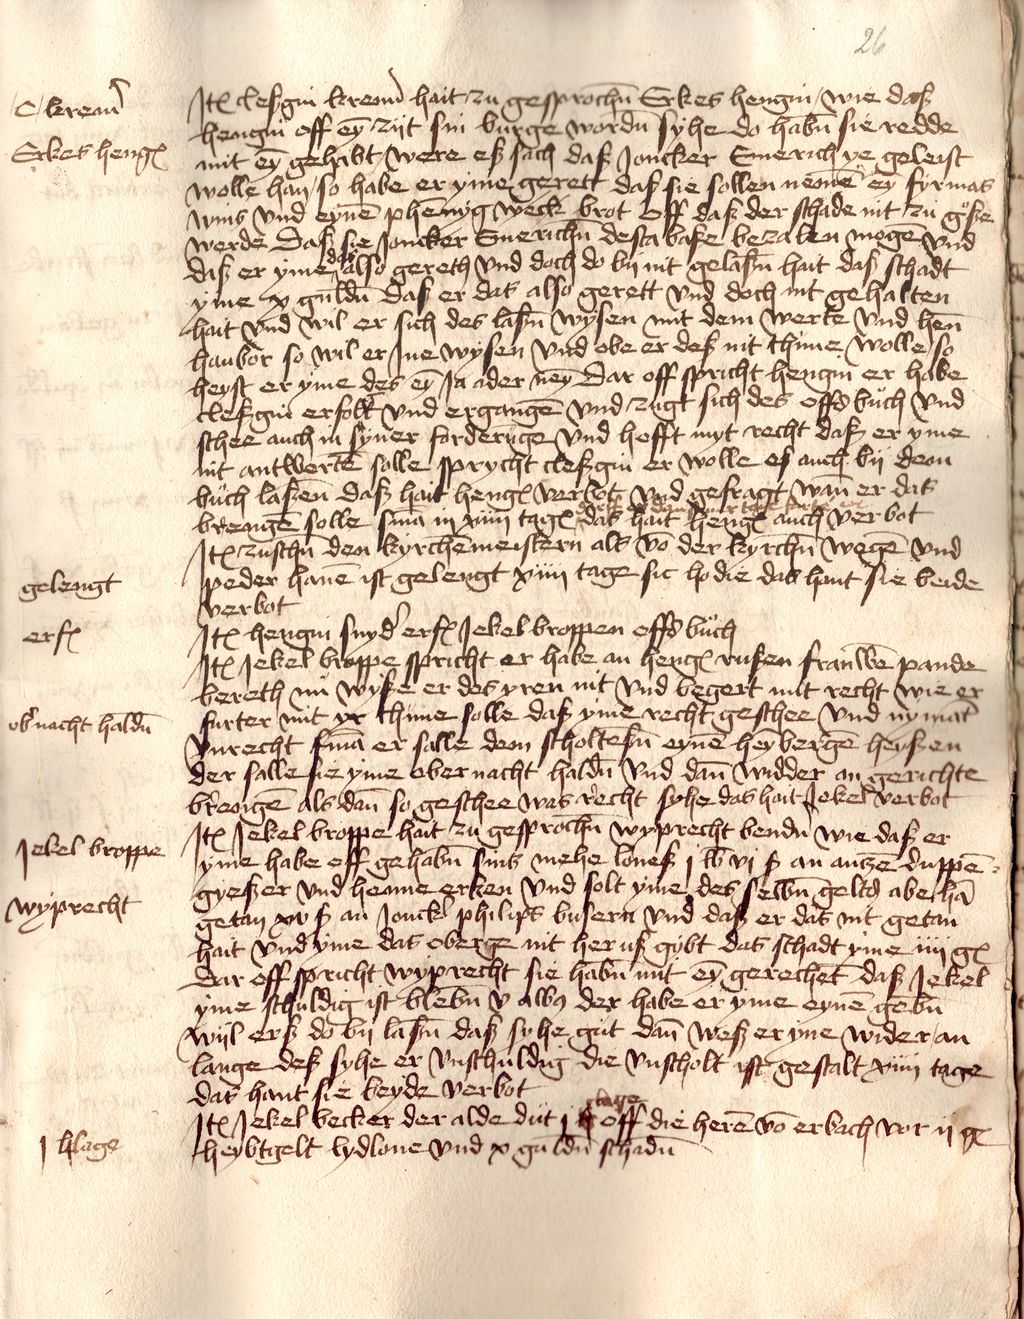 26
C kremer
Erkes heng
Itē cleßgin kremer hait zu gesprochē Erkes hengin / wie daß
hengin off eȳ zijt sin burge wordē syhe do habē sie redde
mit eȳ gehabt / were eß sach daß Joncker Emerich ye geleist
wolle han / so habe er yme gerett daß sie sollen nemē eȳ firmas
wins vnd eynē phēnyg weck brot off daß der schade nit zu große
werde Daß sie Joncker Emerichē desta baße bezalen moge vnd
daß er yme das also gereth vnd doch do bij nit gelaßē hait daß schadt
yme x guldē daß er das also gerett vnd doch nit gehalten
hait vnd wil er sich des laßē wysen mit dem werte vnd hen
haubor so wil er Ine wysen vnd obe er deß nit thune wolle so
heyst er yme des eȳ Ja ader neȳ Dar off spricht hengin er habe
cleßgin erfolt vnd ergangē vnd zugt sich des offs buch vnd
schee auch in syner forderūge vnd hofft myt recht daß er yme
nit antwertē solle sprycht cleßgin er wolle es auch bij dem
buch laßen daß hait heng verbot vnd gefragt wan er das
brengē solle sma in xiiij tag das hait heng auch verbot
gelengt
Itē zuschē den kyrchēmeistern als vō der kyrchē wegē vnd
peder hanē ist gelengt xiiij tage sic hodie das hant sie beide
verbot
erf
Itē hengin snyder erf Jekel broppen offs buch
Itē Jekel broppe spricht er habe an heng rufen frauwē pande
bereth nu wyse er des yren nit vnd begert mit recht wie er
furter mit yr thune solle daß yme recht geschee vnd nymāt
ober nacht haldē
vnrecht sma er salle dem scholteßē eynē heybergē heyßen
der salle sie yme ober nacht haldē vnd dan widder an gerichte
brengē als dan so geschee was recht syhe das hait Jekel verbot
Jekel broppe
wyprecht
Itē Jekel broppe hait zu gesprochē wyprecht bendē wie daß er
yme habe off gehabē sins mehe loneß j lb vj ß an antze duppē
gyeßer vnd henne erken vnd solt yme des selbē geltz abe hā
getan xv ß an Jonckē philips busern vnd daß er das nit getan
hait vnd yme das oberge nit heruß gybt das schadt yme iiij g
Dar off spricht wyprecht sie habē mit eȳ gerechet daß Jekel
yme schuldig ist blebē v albȝ der habe er yme eyne gebē
wijl erß do bij laßē daß syhe gut dan weß er yne wider an
lange deß syhe er vnschuldig die vnscholt ist gestalt xiiij tage
das hant sie beyde verbot
j klage
Itē Jekel becker der alde dut j klage off die herē vō erbach vor ij g
heybtgelt lydlone vnd x guldē schadē